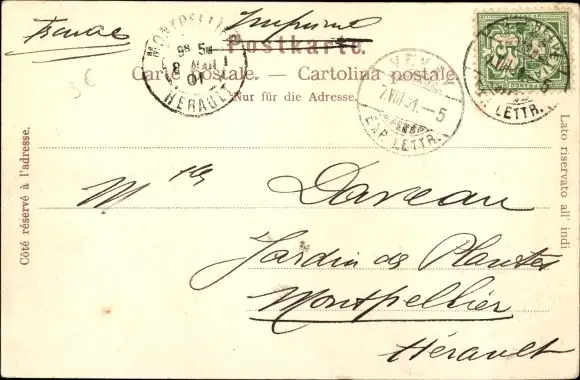 France
Imprimé
Postkarte.
Carte postale. — Cartolina postale.
Nur für die Adresse.
MONTPELLIER
8 5M
01
HERAULT
VEVEY
7.VIII.01.–5
EXP. LETTR.
VEVEY
EXP. LETTR.
3€
Côté réservé à l'adresse.
Lato riservato all' indi
Daveau
Jardin des Plantes
Montpellier
Hérault